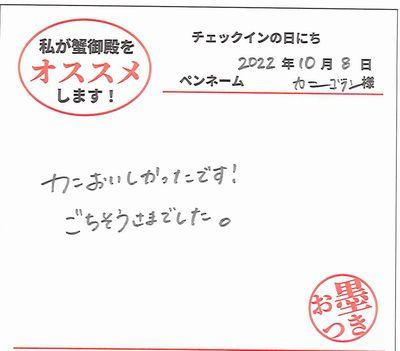 私が蟹御殿を
オススメ
します！
チェックインの日にち
2022 年 10 月 8 日
ペンネーム カニーゴラン 様
カニおいしかったです!
ごちそうさまでした。
お墨つき